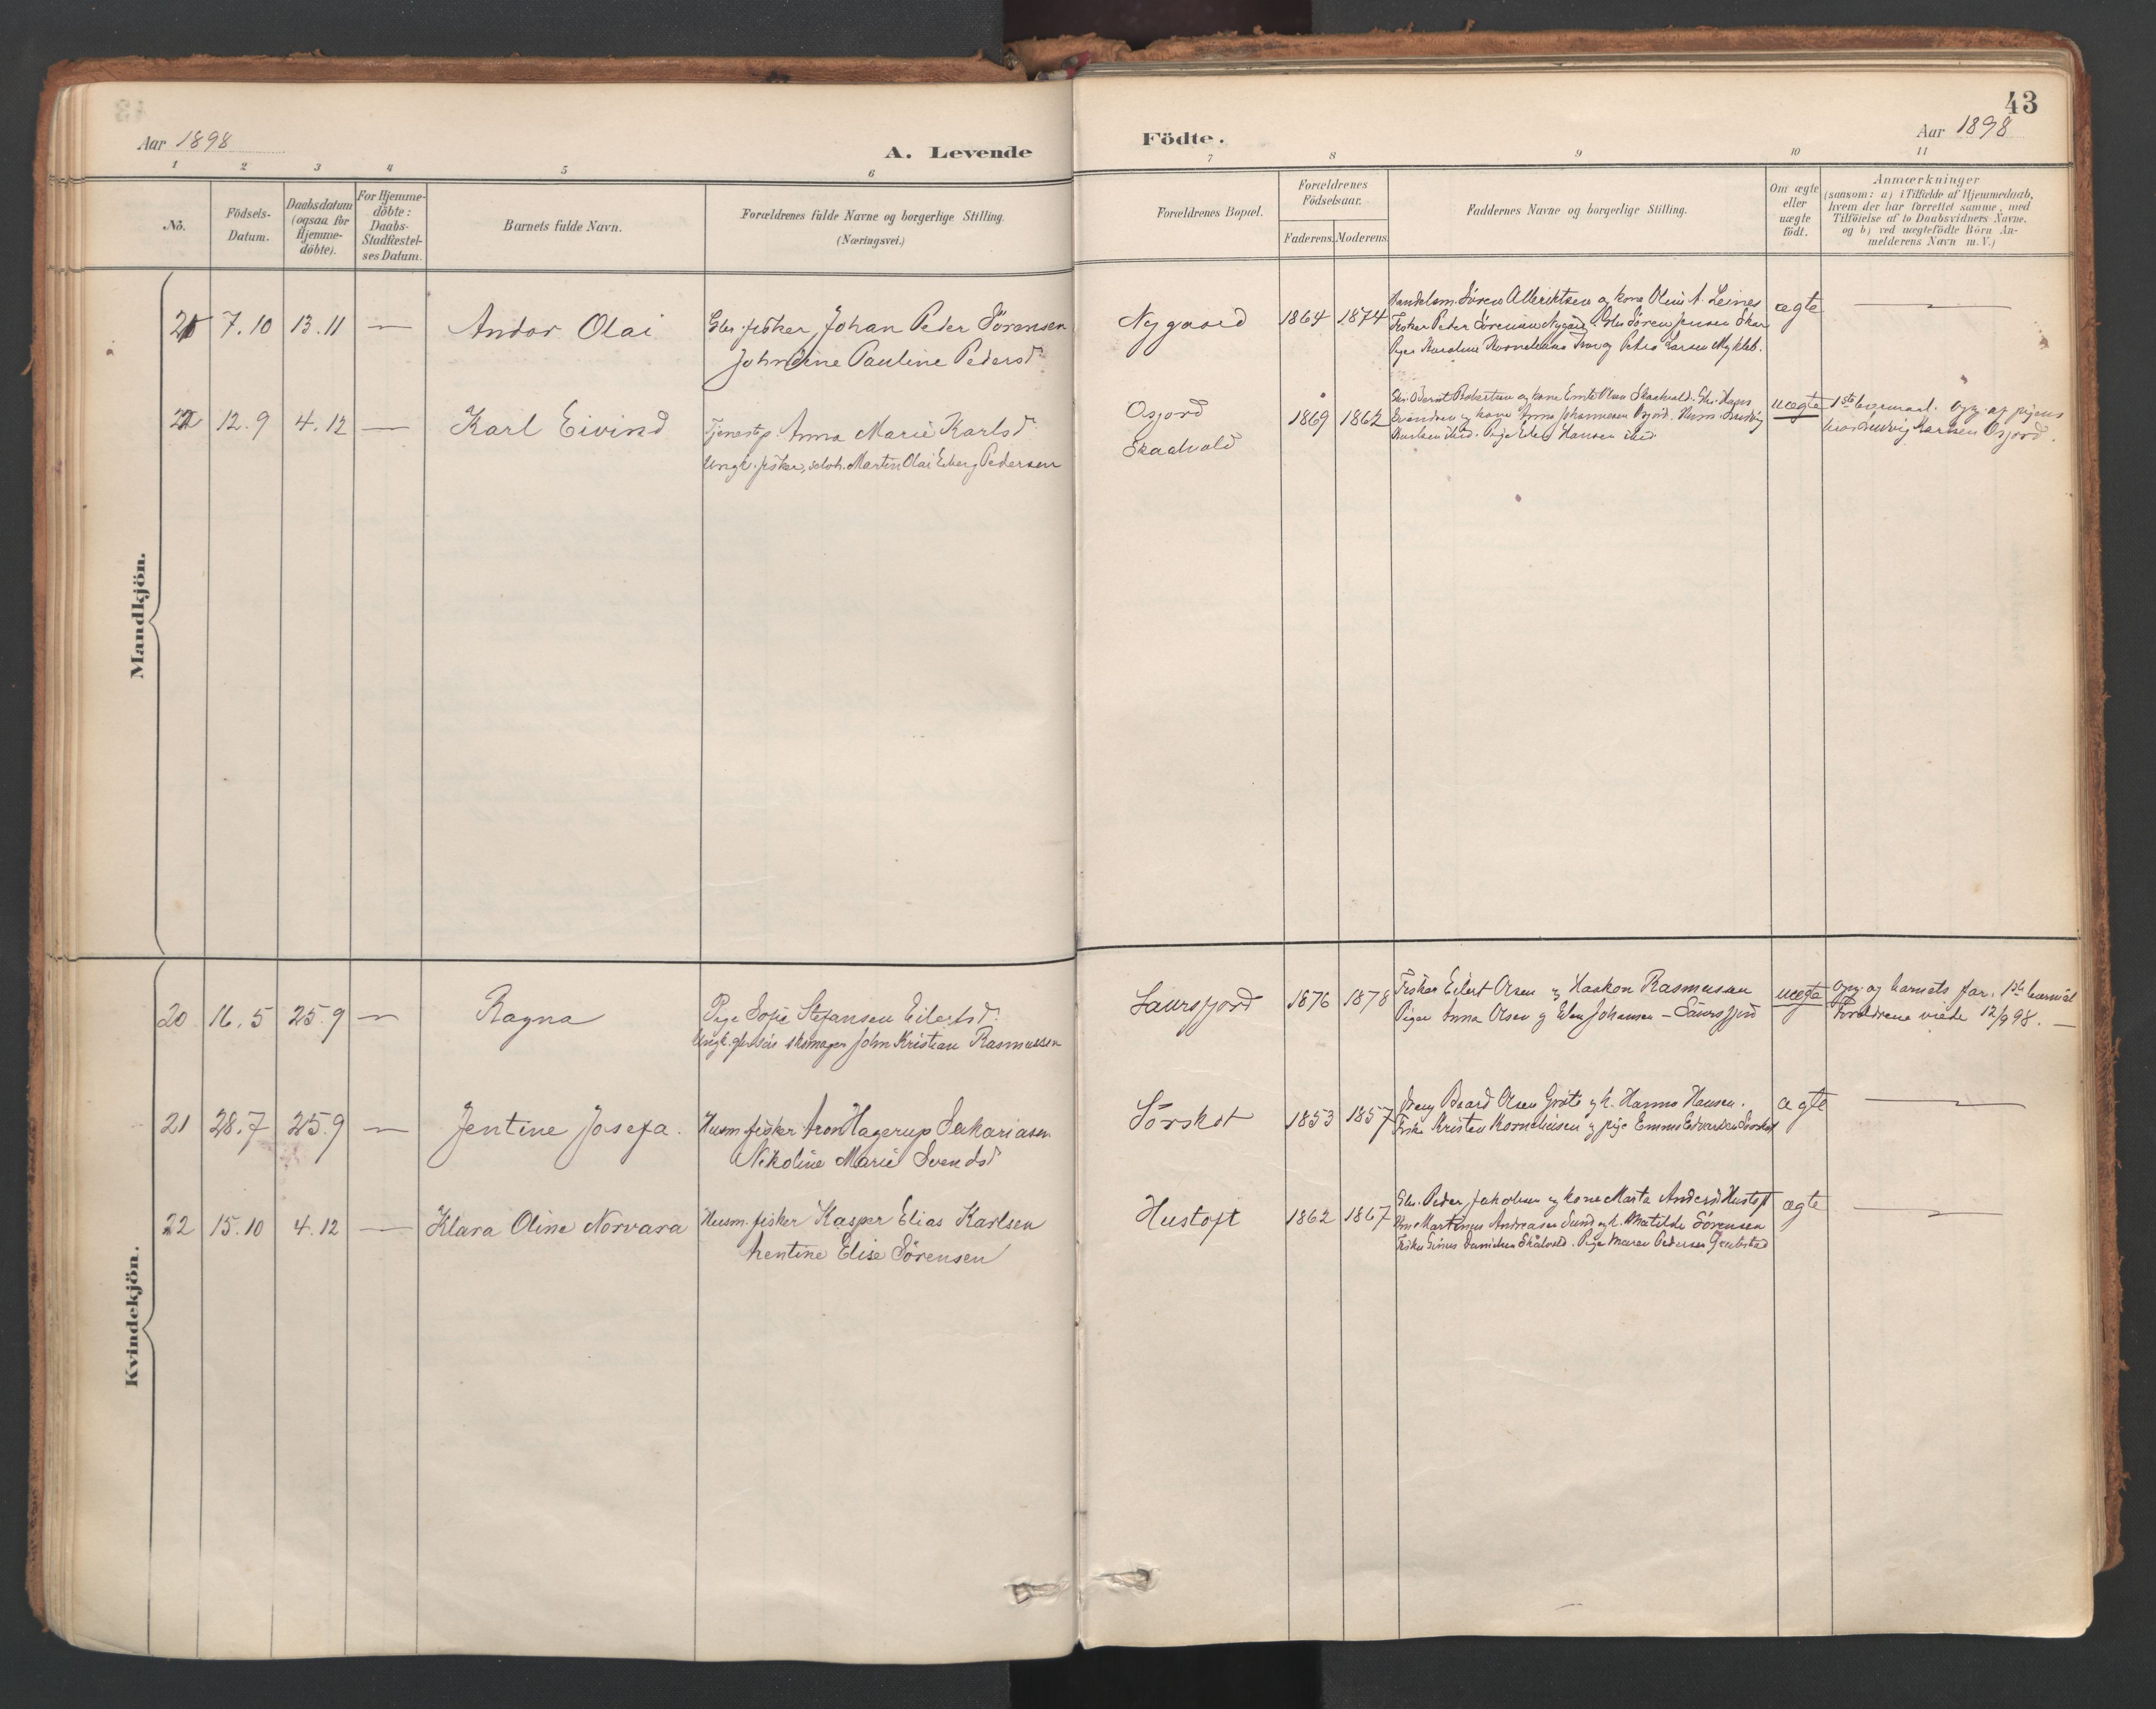 43
Aar 1898
A. Levende
Födte.
Aar 1898
1 2 3 4 5 6 7 8 9 10 11
No.
Födsels-
Datum.
Daabsdatum
(ogsaa for
Hjemme-
döbte).
For Hjemme-
döbte:
Daabs-
Stadfæstel-
ses Datum.
Barnets fulde Navn.
Forældrenes fulde Navne og borgerlige Stilling.
(Næringsvei.)
Forældrenes Bopæl.
Forældrenes
Födselsaar.
Faderens. Moderens.
Faddernes Navne og borgerlige Stilling.
Om ægte
eller
uægte
födt.
Anmærkninger
(saasom: a) i Tilfælde af Hjemmedaab,
hvem der har forrettet samme, med
Tilföielse af to Daabsvidners Navne.
og b) ved uægtefödte Börn An-
melderens Navn m.V.)
Mandkjön.
21 7.10 13.11 — Andor Olai
Gbr. fisker Johan Peder Sörensen
Pauline Pedersd.
Nygaard 1864 1874
Handelsm. Sören Albriktsen og kone Olina A. Leines
Fisker Peder Sörensen Nygård. Gbr Sören Jensen Skar
Piger Karoline og Petra Larsen Mykleb.
ægte —
22 12.9 4.12 — Karl Eivind
Tjenestp. Anna Marie Karlsd.
Ungk. fisker, selvh. Martin Olai Eiberg Pedersen
Osjord
Skaalvold
1869 1862
Gbr. Bernt Robertsen og kone Skaalvold. Gbr. Hagus
og kone Anna Johannesen Osjord. Husm. Ludvig
Karlsen ibid. Pige Hansen ibid.
uægte
1ste leiermaal. Opg. af pigens
bror Ludvig Karlsen Osjord.
Kvindekjön.
20 16.5 25.9 — Ragna
Pige Sofie Stefansen Eilertsd.
Ungk. skomager John Kristian Rasmussen
Saursfjord 1876 1878
Fisker Eilert Olsen og Haakon Rasmussen
Piger Anna Olsen og Johansen — Saursfjord
uægte
Opg. af barnets far. 1ste leiermål
Foreldrene viede 12/9 98. —
21 28.7 25.9 — Jentine Josefa.
Husm. fisker Aron Hagerup Sakariasen
Nikoline Marie Svendsd
Sörskot 1853 1857
Baard Olsen Gröte og k. Hanna Hansen.
Fisker Kristen Korneliusen og pige Emma Edvardsen Sörskot
ægte —
22 15.10 4.12 — Klara Oline Norvara
Husm. fisker Kasper Elias Karlsen
Elise Sörensen
Hustoft 1862 1867
Gbr. Peder Jakobsen og kone Marta Andersd Hustoft
Martinus Andreasen Sund og k. Matilde Sörensen
Fisker Danielsen Skålvold. Pige Maren Pedersen
ægte —